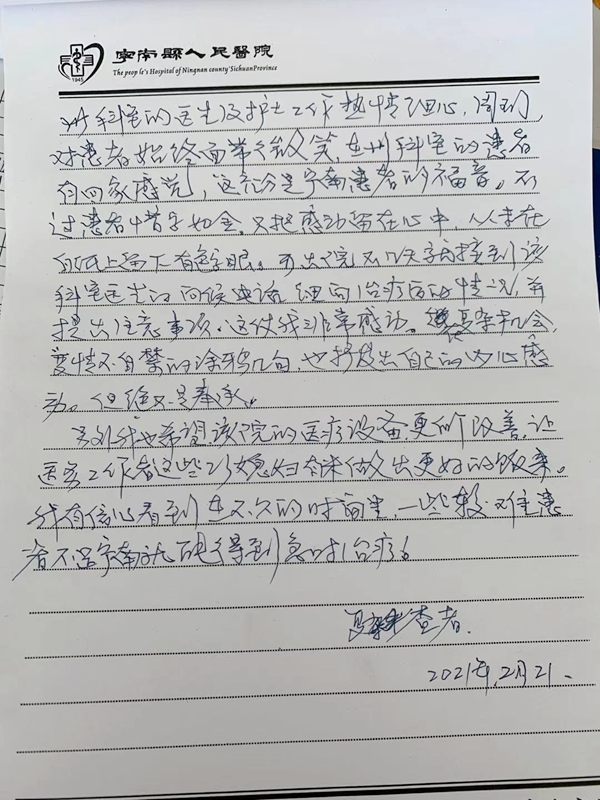 寧南縣人民醫院
The peop le's Hospital of Ningnan county SichuanProvince
1945
科室的医生及护士工作热情细心,周到,
对患者始终面带微笑,在州科室的患者
有回家感觉,这充分是宁南患者的福音。不
过患者惜字如金,只把感动留在心中,人人未在
白纸上留下有色字眼。可出院不几天字我接到该
科室医生的问候电话,细问治疗后的情况,并
提出注意事项,这使我非常感动。复杂机会,
度情不自禁的涂鸦几句,也抒发出自己的内心感
动。但绝不是奉承。
另外我也希望该院的医疗设备更加改善,让
医务工作者这些巧媳妇能做出更好的饭菜。
我有信心看到在不久的时间里,一些较疑难患
者不出宁南就能得到急时治疗。
复查者.
2021年2月21.